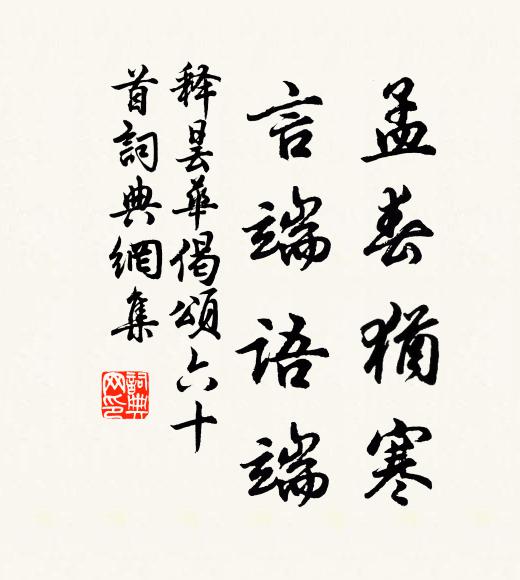 孟春猶寒
言端語端
释昙華偈頌六十
首詞典網集
詞典
网印